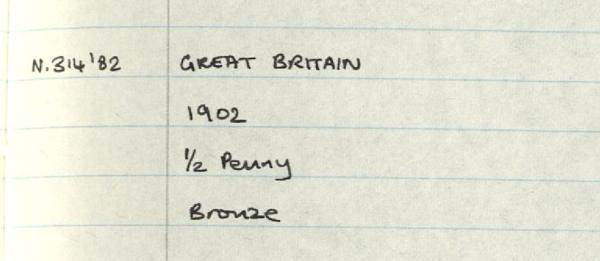 N.314'82 GREAT BRITAIN
1902
1/2 Penny
Bronze